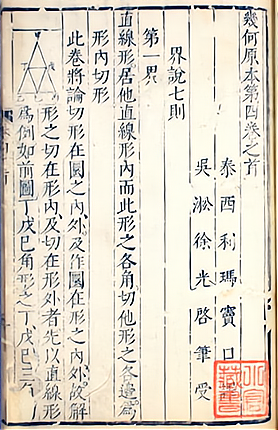 幾何原本第四卷之首
泰西利瑪竇口譯
吳淞徐光啓筆受
界說七則
第一界
直線形居他直線形內而此形之各角切他形之各邊爲
形內切形
此卷將論切形在圜之內外及作圜在形之內外故解
形之切在形內及切在形外者先以直線形
爲例如前圖丁戊己角形之丁戊己三角